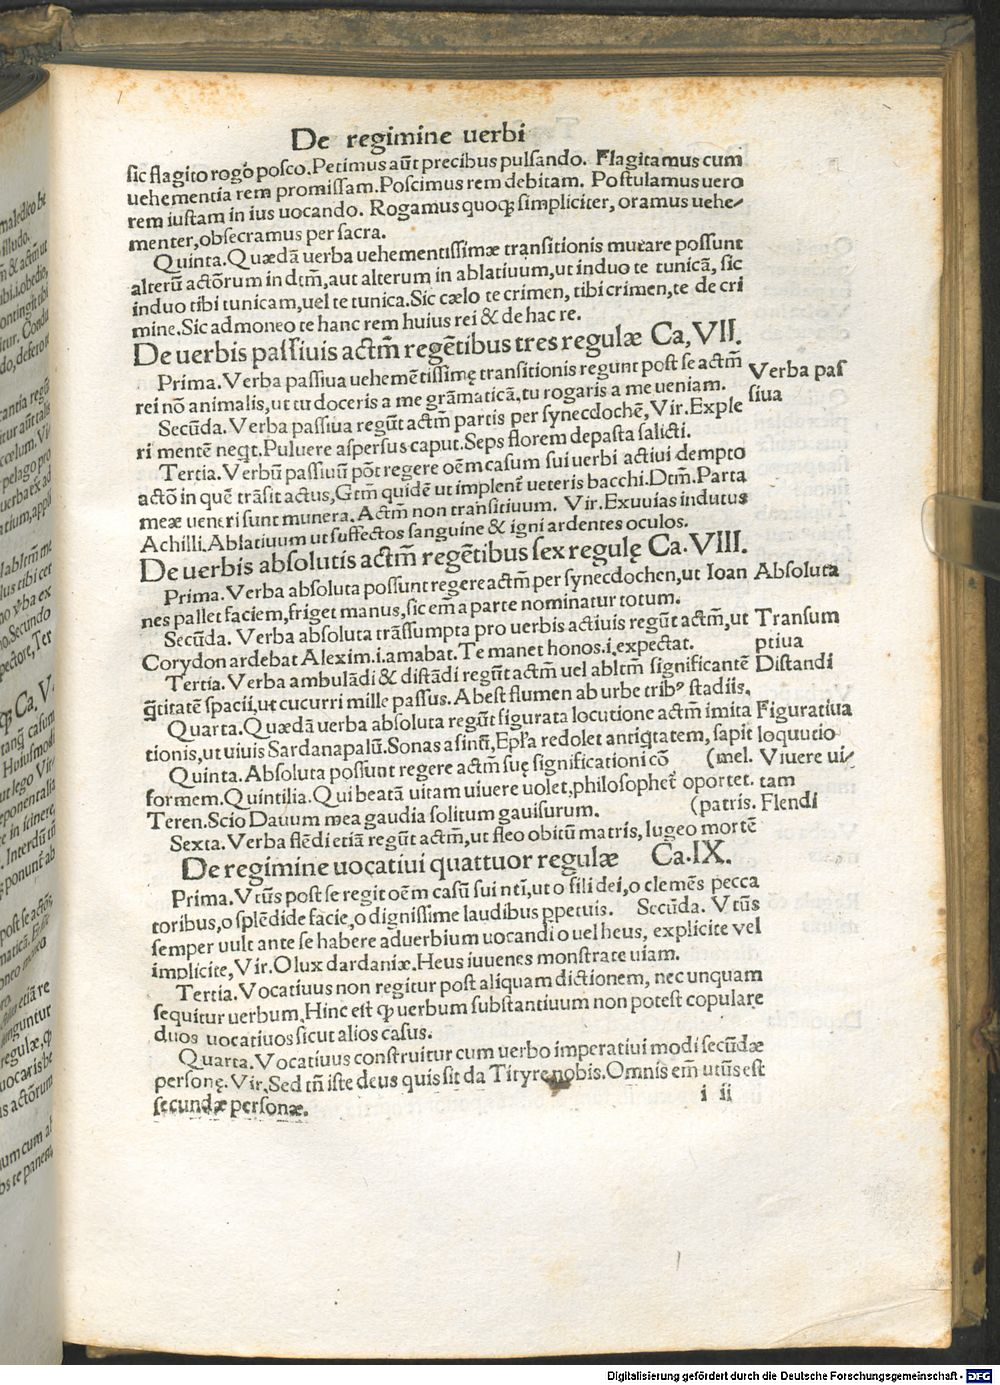 De regimine uerbi
sic flagito rogo posco. Petimus aūt precibus pulsando. Flagitamus cum
uehementia rem promissam. Poscimus rem debitam. Postulamus uero
rem iustam in ius uocando. Rogamus quoqꝫ simpliciter, oramus uehe⸗
menter, obsecramus per sacra.
Quinta. Quædā uerba uehementissimæ transitionis mutare possunt
alterū actōrum in dtm̄, aut alterum in ablatiuum, ut induo te tunicā, sic
induo tibi tunicam, uel te tunica. Sic cælo te crimen, tibi crimen, te de cri
mine. Sic admoneo te hanc rem huius rei & de hac re.
De uerbis passiuis actm̄ regētibus tres regulæ Ca, VII.
Prima. Verba passiua uehemētissimę transitionis regunt post se actm̄
rei nō animalis, ut tu doceris a me grāmaticā, tu rogaris a me ueniam.
Verba pas
siua
Secūda. Verba passiua regūt actm̄ partis per synecdochē, Vir. Exple
ri mentē neqt. Puluere aspersus caput. Seps florem depasta salicti.
Tertia. Verbū passiuū pōt regere oēm casum sui uerbi actiui dempto
actō in quē trāsit actus, Gtm̄ quidē ut implent̄ ueteris bacchi. Dtm̄. Parta
meæ ueneri sunt munera. Actm̄ non transitiuum. Vir. Exuuias indutus
Achilli. Ablatiuum ut suffectos sanguine & igni ardentes oculos.
De uerbis absolutis actm̄ regētibus sex regulę Ca. VIII.
Prima. Verba absoluta possunt regere actm̄ per synecdochen, ut Ioan
Absoluta
nes pallet faciem, friget manus, sic em̄ a parte nominatur totum.
Secūda. Verba absoluta trāssumpta pro uerbis actiuis regūt actm̄, ut
Transum
ptiua
Corydon ardebat Alexim. i. amabat. Te manet honos. i. expectat.
Tertia. Verba ambulādi & distādi regūt actm̄ uel abltm̄ significantē
Distandi
q̄titatē spacii, ut cucurri mille passus. Abest flumen ab urbe tribꝰ stadiis.
Quarta. Quædā uerba absoluta regūt figurata locutione actm̄ imita
Figuratiua
tionis, ut uiuis Sardanapalū. Sonas asinū, Epƚa redolet antiqtatem, sapit
loquutio
Quinta. Absoluta possunt regere actm̄ suę significationi cō (mel.
Viuere ui⸗
formem. Quintilia. Qui beatā uitam uiuere uolet, philosophet̄ oportet.
tam
Teren. Scio Dauum mea gaudia solitum gauisurum. (patris.
Flendi
Sexta. Verba flēdi etiā regūt actm̄, ut fleo obitū matris, lugeo mortē
De regimine uocatiui quattuor regulæ Ca. IX.
Prima. Vtūs post se regit oēm casū sui nti, ut o fili dei, o clemēs pecca
toribus, o splēdide facie, o dignissime laudibus ꝑpetuis. Secūda. Vtūs
semper uult ante se habere aduerbium uocandi o uel heus, explicite vel
implicite, Vir. O lux dardaniæ. Heus iuuenes monstrate uiam.
Tertia. Vocatiuus non regitur post aliquam dictionem, nec unquam
sequitur uerbum. Hinc est ꝙ uerbum substantiuum non potest copulare
duos uocatiuos sicut alios casus.
Quarta. Vocatiuus construitur cum uerbo imperatiui modi secūdæ
personę. Vir. Sed tn̄ iste deus quis sit da Tityre nobis. Omnis em̄ utūs est
secundæ personæ.
i ii
Digitalisierung gefördert durch die Deutsche Forschungsgemeinschaft - DFG